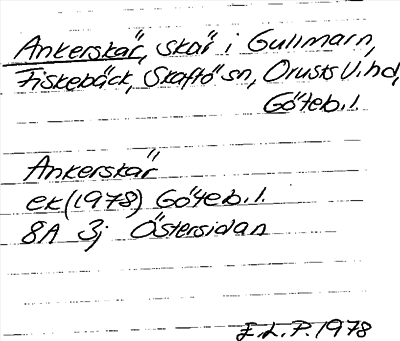 Ankerskär, skär i Gullmarn,
Fiskebäck, Skaftö sn, Orusts V. hd,
Göteb. l.
Ankerskär
ek (1978) Göteb. l.
8A 3j Östersidan
E. L. P. 1978